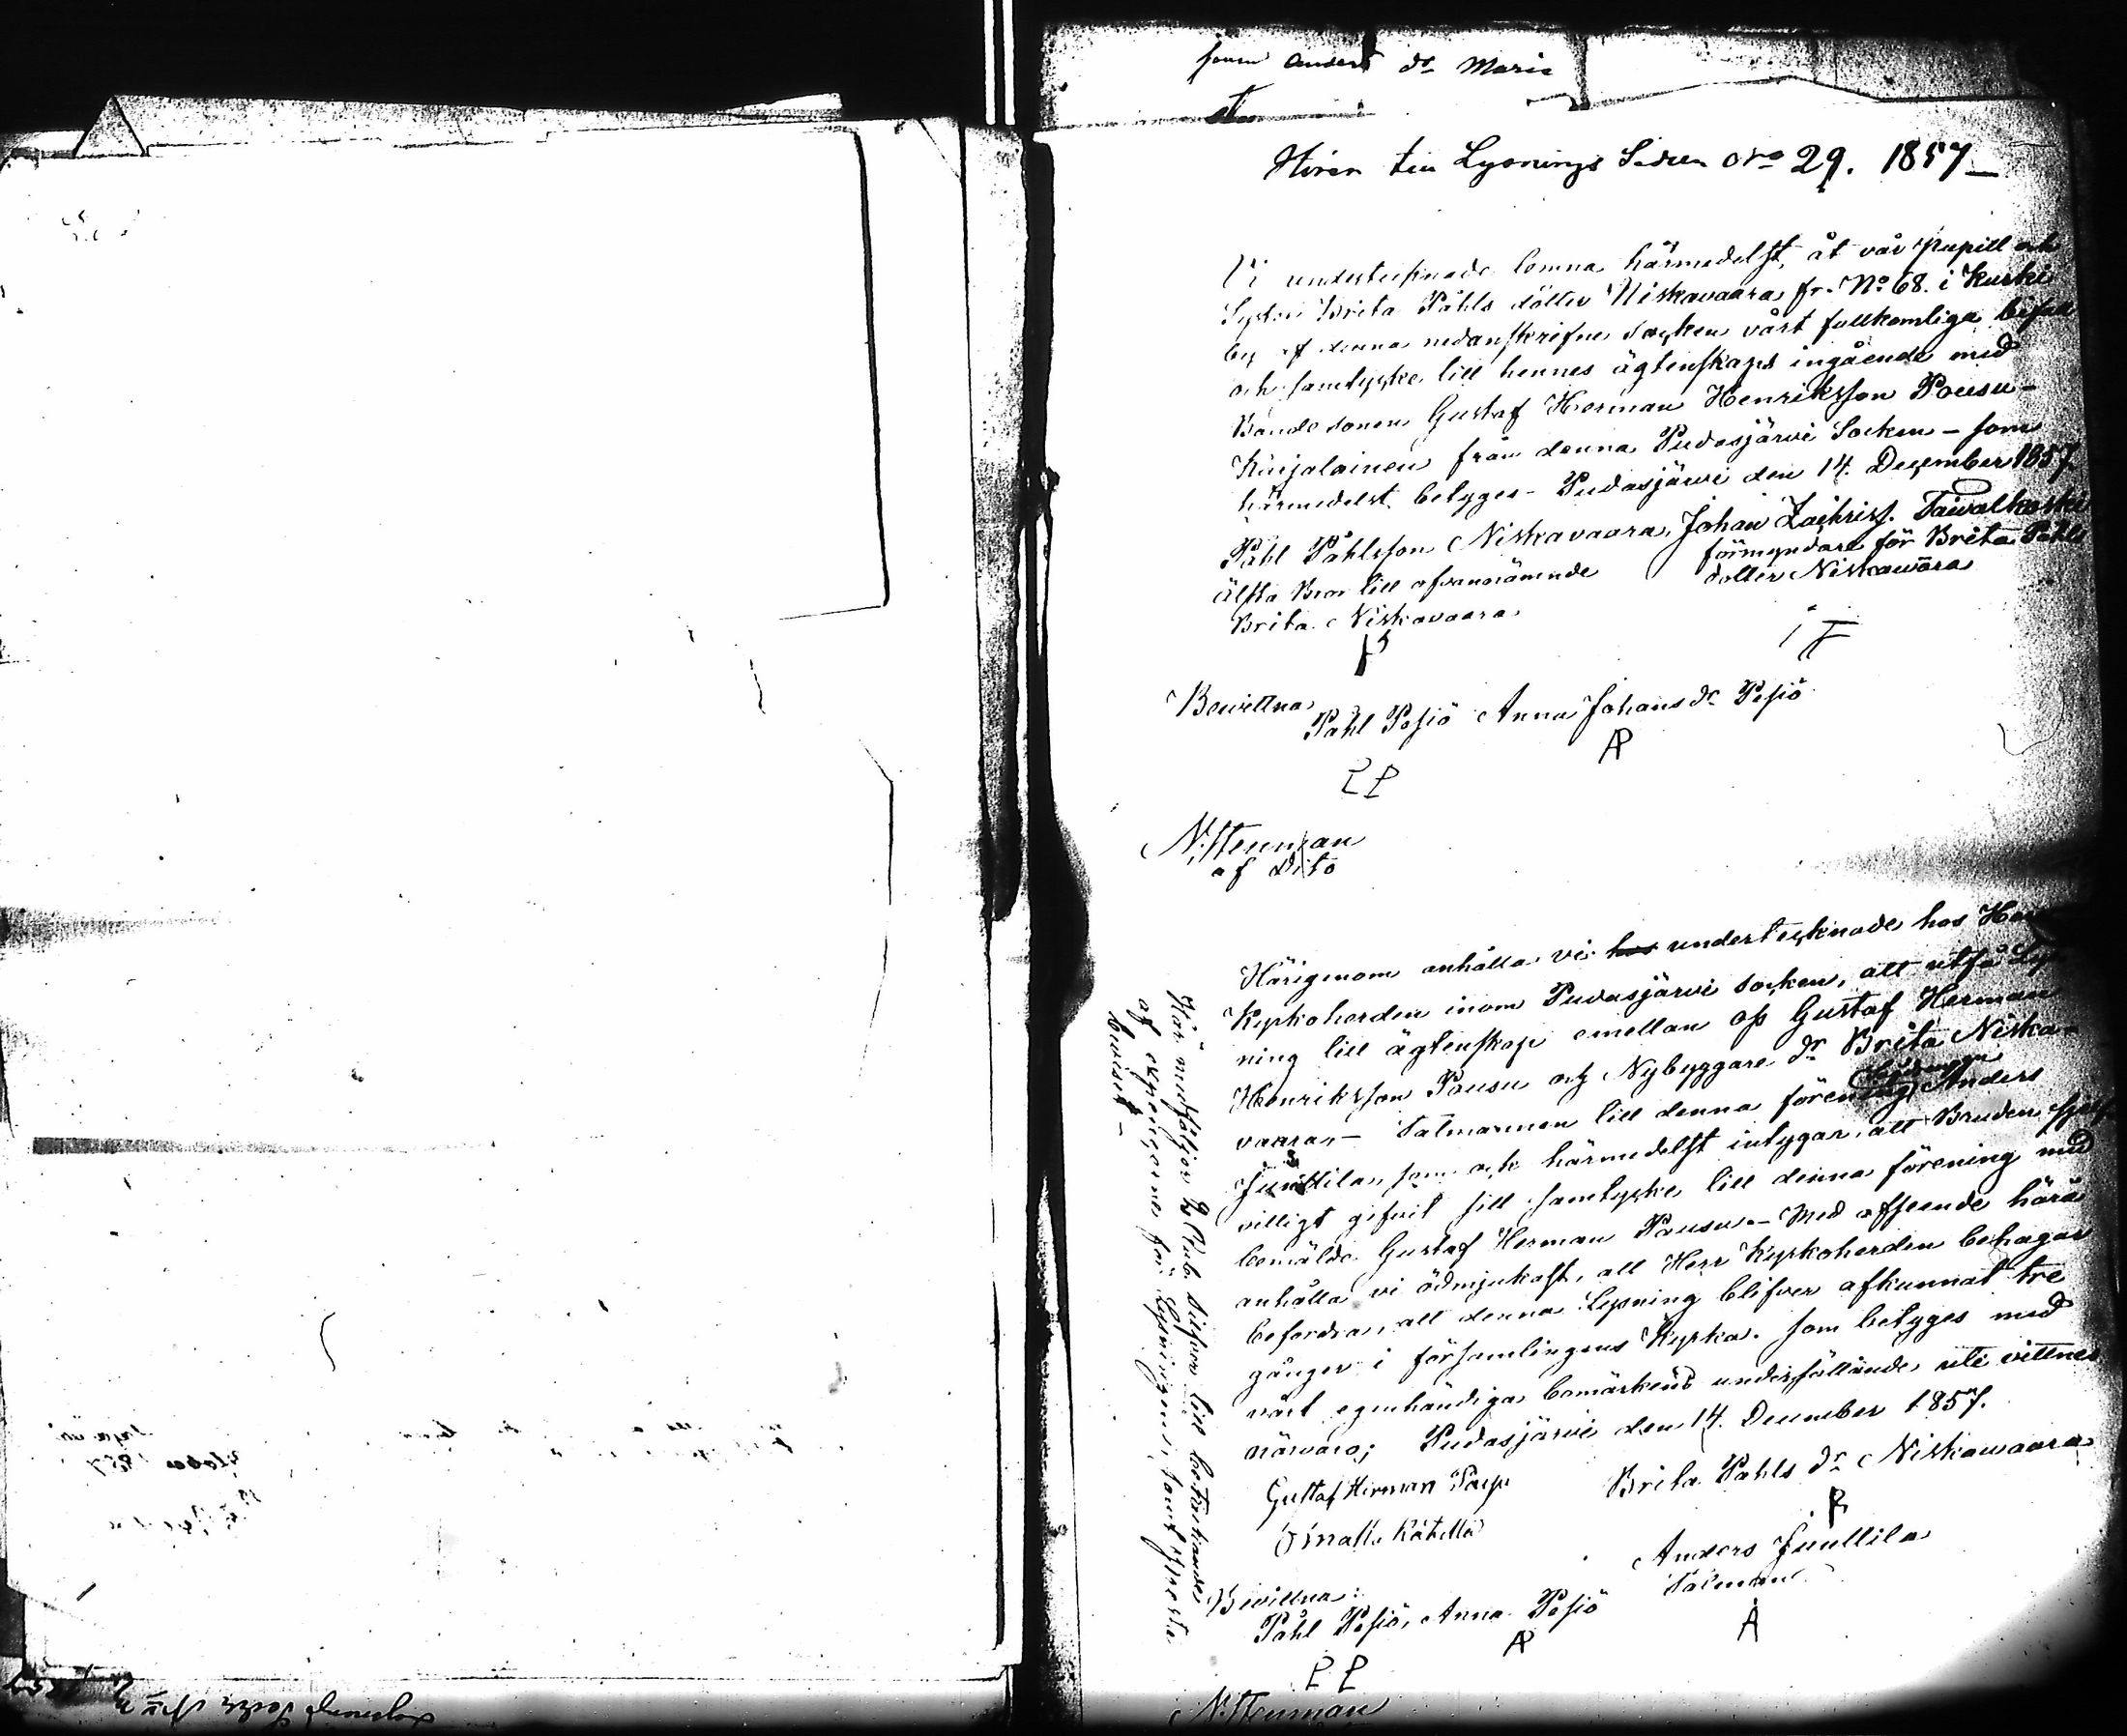 Anders dr Maria
Hörer till Lysnings Sedeln No 29. 1857
Vi undertecknade lemna härmedelst, åt vår Pupill och
Syster Brita Påhls dotter Niskavaara fr. No 68. i Kurki
by af denna nedanskrifne Socken vårt fullkomliga bifall
och samtycke till hennes ägtenskaps ingående med
Bondesonen Gustaf Herman Henriksson Pousu-
Karjalainen från denna Pudasjärvi Socken - som
härmedelst betyges - Pudasjärvi den 14. December 1857.
Påhl Påhlsson Niskavaara, Johan Zachriss. Taivalkoski
älsta Bror till ofvannämnde
förmyndare för Brita Påhls
Brita Niskavaara
dotter Niskawaara
Bewittna
Påhl Pesiö Anna Johans dr Pesiö
AP
PP
N. Stenman
af Dito
Härigenom anhålla vi hos undertecknade hos Herr
Kyrkoherden inom Pudasjärvi socken, att utfå Lys
ning till ägtenskap emellan oss Gustaf Herman
Henriksson Pousu och Nybyggare dr Brita Niska-
vaara - Talmannen till denna förening Anders
Juuttila, som ock härmedelst intygar, att Bruden sjelf
villigt gifvit sitt samtycke till denna förening med
bemälde Gustaf Herman Pousu - Med afseende härå
anhålla vi ödmjukast, att Herr Kyrkoherden behagar
befordra, att denna Lysning blifver afkunnat tre
gånger i församlingens Kyrka. som betyges med
vårt egenhändiga bomärkens undersättande uti vittnes
närvaro; Pudasjärvi den 14. December 1857.
Gustaf Herman Brita Påhls dr Niskawaara
Anders Juuttila
Talman
A
Bevittna:
Påhl Pesiö, Anna Pesiö
AP
PP
N. Stenman
Här medföljer 2 Rub. silfver till bestridande
af expensorne för Lysningens, samt
beviset -